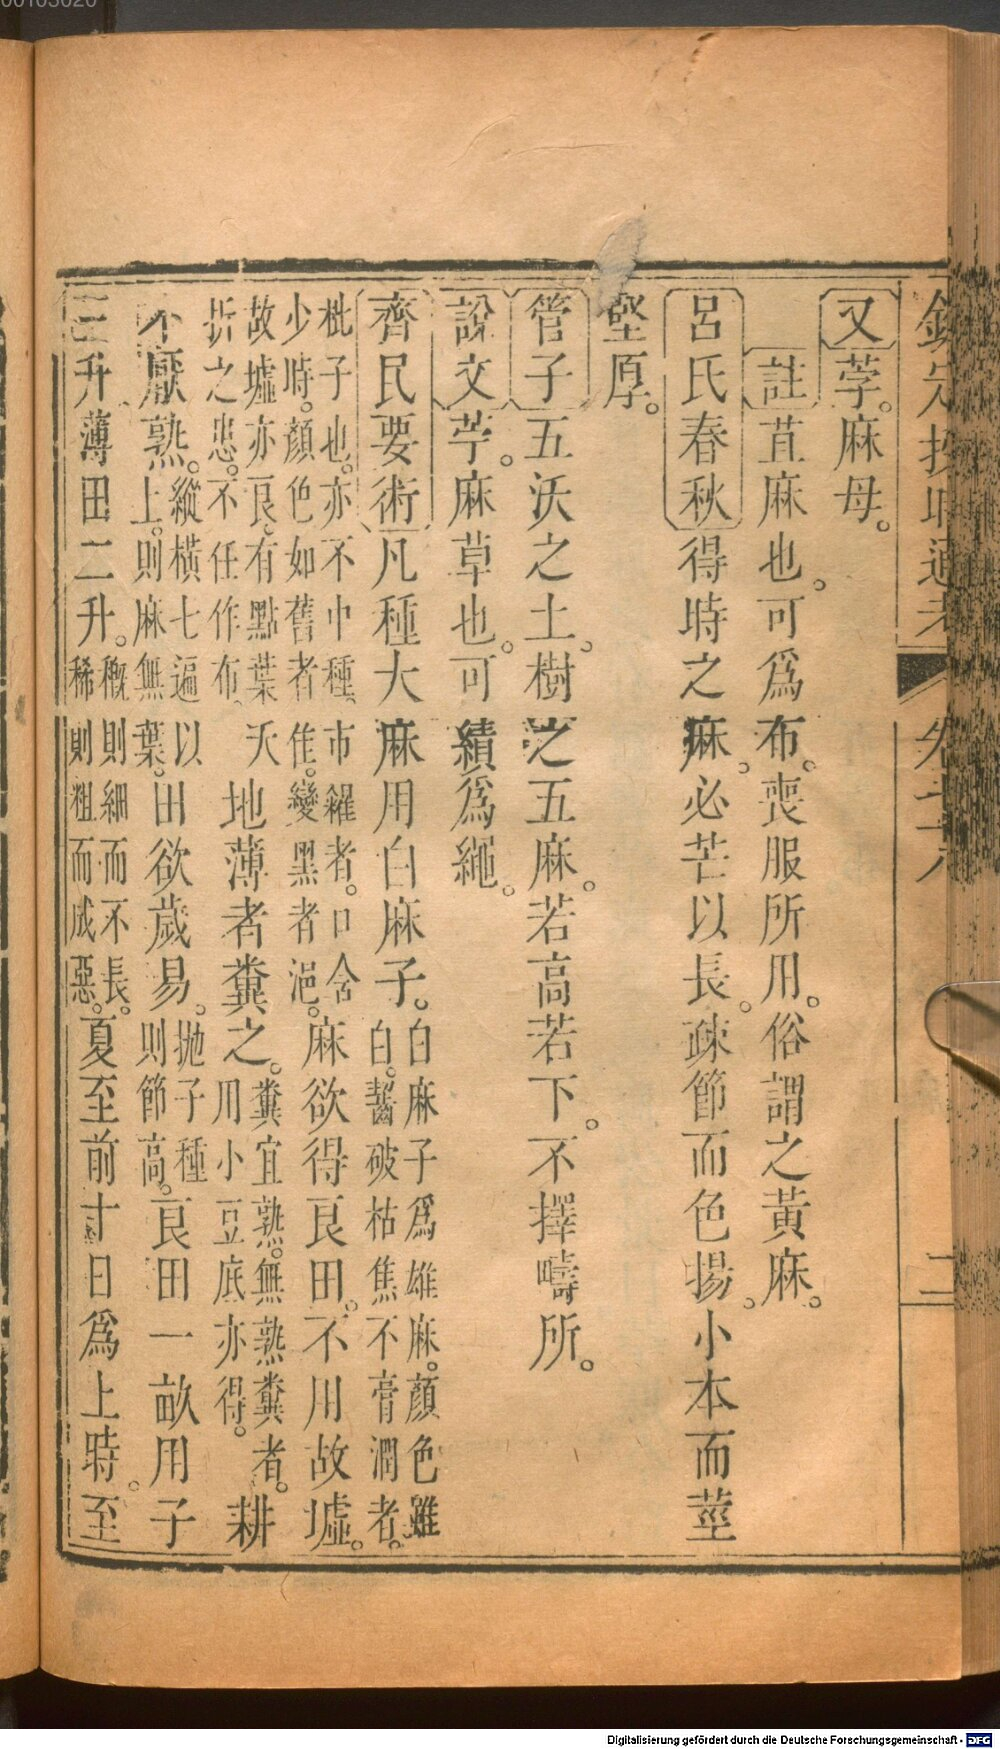 欽定授時通考 卷二十六 二
又荸。麻母。
註苴麻也。可爲布。喪服所用。俗謂之黃麻。
呂氏春秋得時之麻。必芒以長。疎節而色揚。小本而莖
堅厚。
管子五沃之土。樹之五麻。若高若下。不擇疇所。
說文苧。麻草也。可績爲繩。
齊民要術凡種大麻用白麻子。白麻子爲雄麻。顔色雖白。齧破枯焦不膏潤者。
枇子也。亦不中種。市糴者。口含少時。顔色如舊者佳。變黑者浥。麻欲得良田。不用故墟。
故墟亦良。有點葉夭折之患。不任作布。地薄者糞之。糞宜熟。無熟糞者。用小豆底亦得。耕
不厭熟。縱橫七遍以上。則麻無葉。田欲歲易。抛子種則節高。良田一畝用子
三升。薄田二升。穊則細而不長。稀則粗而皮惡。夏至前十日爲上時。至
00103020
Digitalisierung gefördert durch die Deutsche Forschungsgemeinschaft - DFG